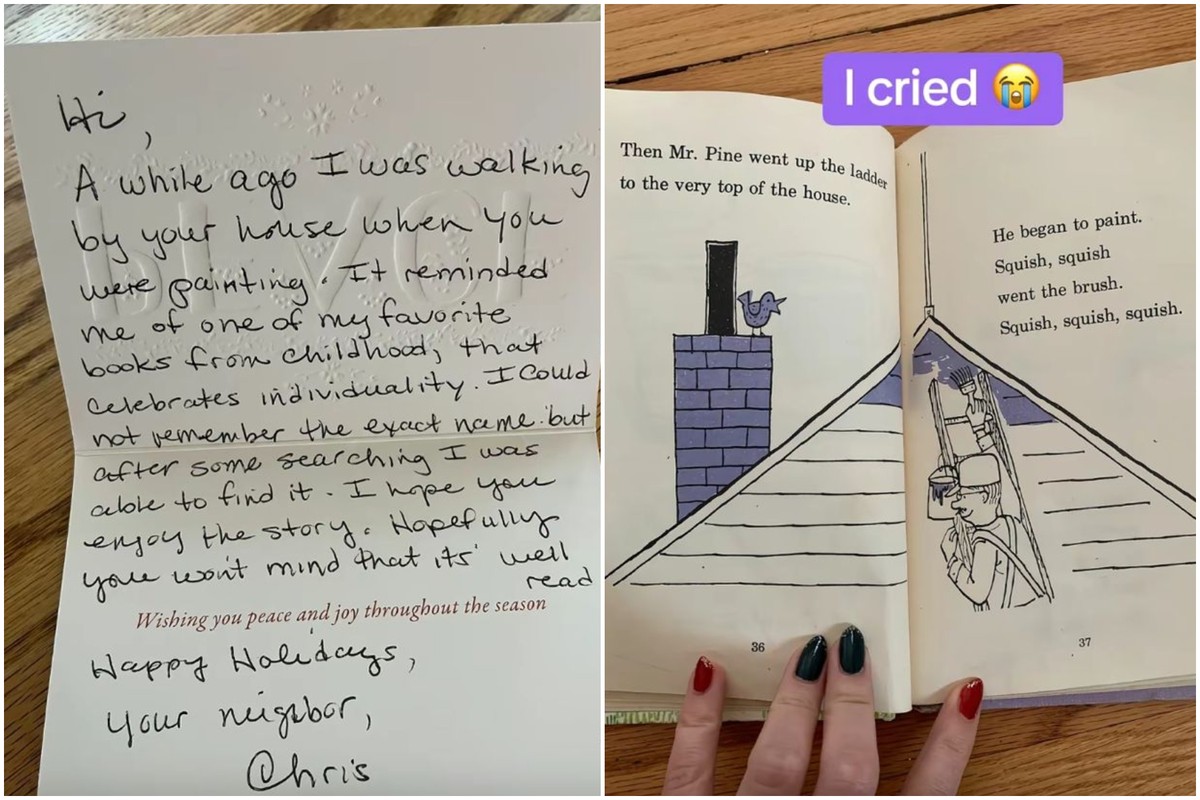 Hi,
A while ago I was walking
by your house when you
were painting. It reminded
me of one of my favorite
books from childhood, that
celebrates individuality. I could
not remember the exact name but
after some searching I was
able to find it. I hope you
enjoy the story. Hopefully
you won't mind that its' well
read
Wishing you peace and joy throughout the season
Happy Holidays,
your neighbor,
Chris
I cried 😭
Then Mr. Pine went up the ladder
to the very top of the house.
36
He began to paint.
Squish, squish
went the brush.
Squish, squish, squish.
37